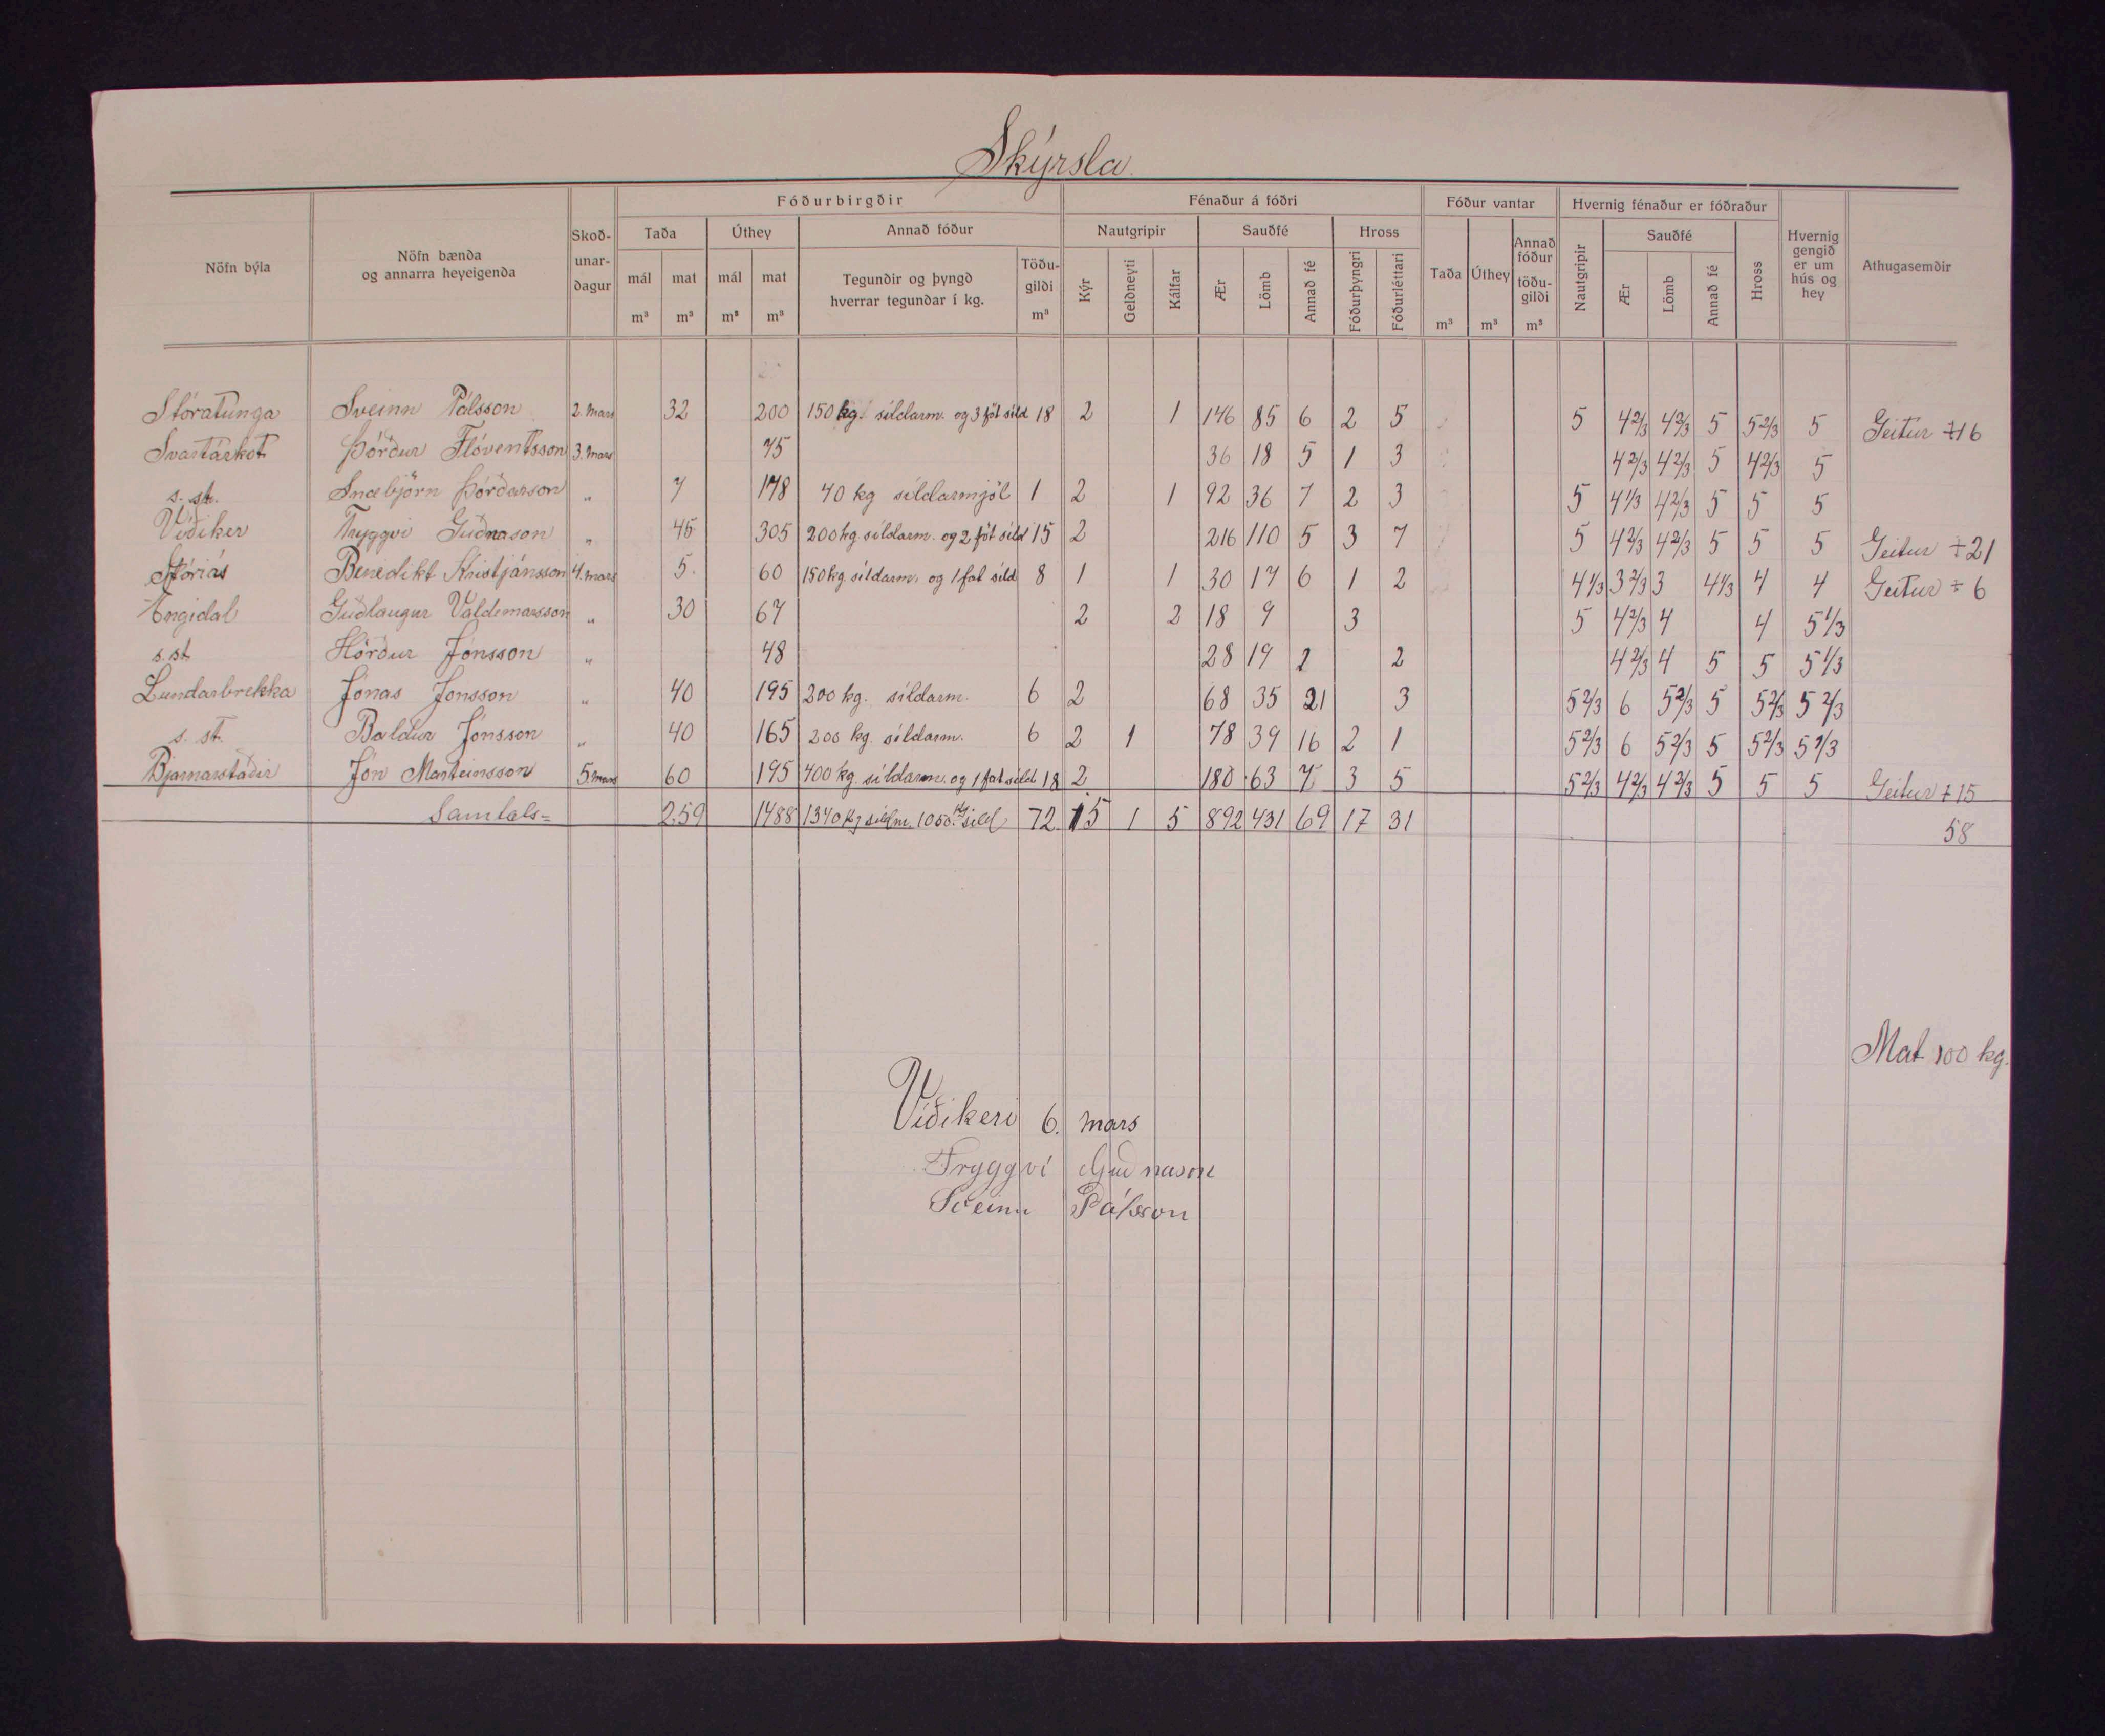 Skýrsla.
Nöfn býla
Nöfn bænda og annarra heyeigenda
Skoð-unar-dagur
Fóðurbirgðir
Taða
mál m³
mat m³
Úthey
mál m³
mat m³
Annað fóður
Tegundir og þyngd hverrar tegundar í kg.
Töðu-gildi m³
Fénaður á fóðri
Nautgripir
Kýr
Geldneyti
Kálfar
Sauðfé
Ær
Lömb
Annað fé
Hross
Fóðurþyngri
Fóðurléttari
Fóður vantar
Taða m³
Úthey m³
Annað fóður töðu-gildi m³
Hvernig fénaður er fóðraður
Nautgripir
Sauðfé
Ær
Lömb
Annað fé
Hross
Hvernig gengið er um hús og hey
Athugasemdir
Stóratunga Sveinn Pálsson 2. mars 32 200 150 kg. síldarm. og 3 föt síld 18 2 1 146 85 6 2 5 5 4 2/3 4 2/3 5 5 2/3 5 Geitur ÷16
Svartárkot Þórður Flóventsson 3. mars 75 36 18 5 1 3 4 2/3 4 2/3 5 4 2/3 5
s. st. Snæbjörn Þórðarson „ 7 178 40 kg síldarmjöl 1 2 1 92 36 7 2 3 5 4 1/3 4 2/3 5 5 5
Víðiker Tryggvi Guðnason „ 45 305 200 kg síldarm. og 2 föt síld 15 2 216 110 5 3 7 5 4 2/3 4 2/3 5 5 5 Geitur ÷21
Stóriás Benedikt Kristjánsson 4. mars 5. 60 150 kg síldarm. og 1 fat síld 8 1 1 30 17 6 1 2 4 1/3 3 2/3 3 4 1/3 4 4 Geitur ÷ 6
Engidal Guðlaugur Valdemarsson „ 30 67 2 2 18 9 3 5 4 2/3 4 4 5 1/3
s. st. Hörður Jónsson „ 48 28 19 2 2 4 2/3 4 5 5 5 1/3
Lundarbrekka Jónas Jónsson „ 40 195 200 kg. síldarm. 6 2 68 35 21 3 5 2/3 6 5 2/3 5 5 2/3 5 2/3
s. st. Baldur Jónsson „ 40 165 200 kg. síldarm. 6 2 1 78 39 16 2 1 5 2/3 6 5 2/3 5 5 2/3 5 1/3
Bjarnarstaðir Jón Marteinsson 5. mars 60 195 400 kg síldarm. og 1 fat síld 18 2 180 63 7 3 5 5 2/3 4 2/3 4 2/3 5 5 5 Geitur ÷15
Samtals= 259 1488 1340 kg síldm. 1050 kg síld 72 15 1 5 892 431 69 17 31 58
Mat 100 kg.
Víðikeri 6. mars
Tryggvi Guðnason
Sveinn Pálsson